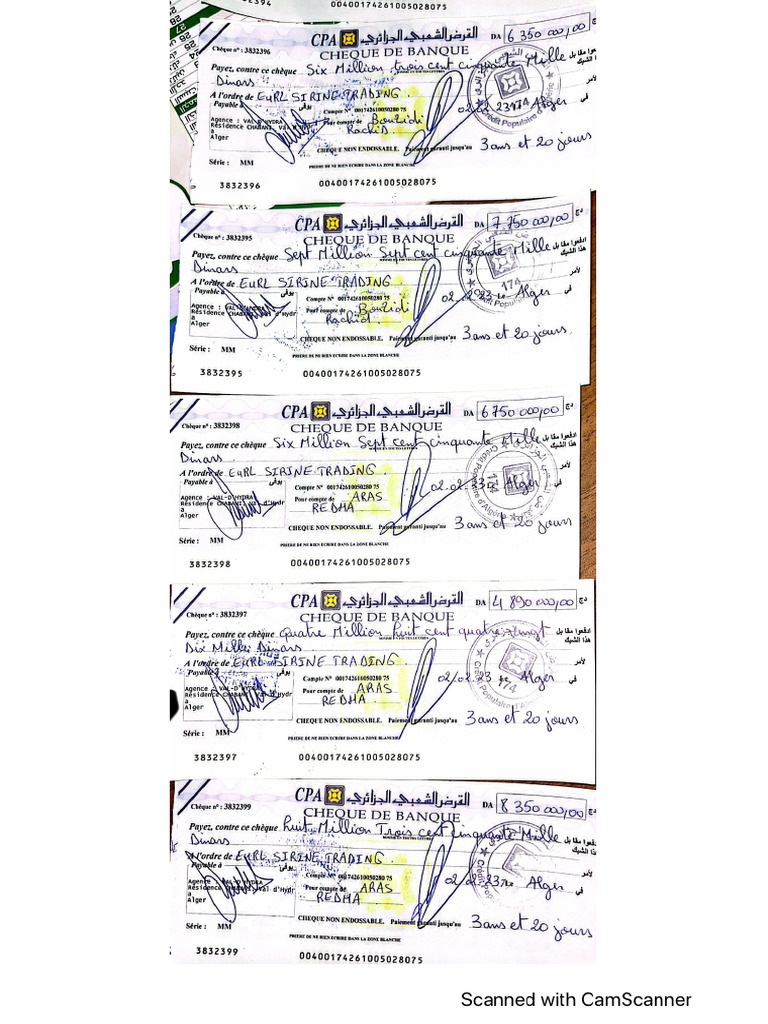 00400174261005028075
CPA القرض الشعبي الجزائري DA 6 350 000,00 دج
Chèque n° : 3832396 CHEQUE DE BANQUE
Payez, contre ce chèque Six Million trois cent cinquante Mille ادفعوا مقابل هذا الشيك
Dinars
A l'ordre de EURL SIRINE TRADING. لأمر
Payable à يوفى Compte N° 00174261005028075 Alger في
Agence : VAL D'HYDRA Pour compte de Bouzidi
Résidence CHABANI Val d'Hydr Rachid
a
Alger CHEQUE NON ENDOSSABLE. Paiement garanti jusqu'au 3 ans et 20 jours
Série : MM PRIERE DE NE RIEN ECRIRE DANS LA ZONE BLANCHE
3832396 00400174261005028075
CPA القرض الشعبي الجزائري DA 7 750 000,00 دج
Chèque n° : 3832395 CHEQUE DE BANQUE
Payez, contre ce chèque Sept Million Sept cent cinquante Mille ادفعوا مقابل هذا الشيك
Dinars
A l'ordre de EURL SIRINE TRADING. لأمر
Payable à يوفى Compte N° 001742610050280 75 02.02.23 Alger في
Agence : VAL-D'HYDRA Pour compte de Bouzidi
Résidence CHABANI Val d'Hydr Rachid.
a
Alger CHEQUE NON ENDOSSABLE. Paiement garanti jusqu'au 3 ans et 20 jours.
Série : MM PRIERE DE NE RIEN ECRIRE DANS LA ZONE BLANCHE
3832395 00400174261005028075
CPA القرض الشعبي الجزائري DA 6 750 000,00 دج
Chèque n° : 3832398 CHEQUE DE BANQUE
Payez, contre ce chèque Six Million Sept cent cinquante Mille ادفعوا مقابل هذا الشيك
Dinars.
A l'ordre de EURL SIRINE TRADING. لأمر
Payable à يوفى Compte N° 001742610050280 75 02.02.23 Alger في
Agence : VAL-D'HYDRA Pour compte de ARAS
Résidence CHABANI Val d'Hydr REDHA
a
Alger CHEQUE NON ENDOSSABLE. Paiement garanti jusqu'au 3 ans et 20 jours
Série : MM PRIERE DE NE RIEN ECRIRE DANS LA ZONE BLANCHE
3832398 00400174261005028075
CPA القرض الشعبي الجزائري DA 4 890 000,00 دج
Chèque n° : 3832397 CHEQUE DE BANQUE
Payez, contre ce chèque Quatre Million huit cent quatre vingt ادفعوا مقابل هذا الشيك
Dix Mille Dinars
A l'ordre de EURL SIRINE TRADING. لأمر
Payable à يوفى Compte N° 001742610050280 75 02/02.23 Alger في
Agence : VAL-D'HYDRA Pour compte de ARAS
Résidence CHABANI Val d'Hydr REDHA
a
Alger CHEQUE NON ENDOSSABLE. Paiement garanti jusqu'au 3 ans et 20 jours
Série : MM PRIERE DE NE RIEN ECRIRE DANS LA ZONE BLANCHE
3832397 00400174261005028075
CPA القرض الشعبي الجزائري DA 8 350 000,00 دج
Chèque n° : 3832399 CHEQUE DE BANQUE
Payez, contre ce chèque huit Million Trois cent cinquante Mille ادفعوا مقابل هذا الشيك
Dinars
A l'ordre de EURL SIRINE TRADING. لأمر
Payable à يوفى Compte N° 001742610050280 75 02.02.23 Alger في
Agence : VAL-D'HYDRA Pour compte de ARAS
Résidence CHABANI Val d'Hydr REDHA
a
Alger CHEQUE NON ENDOSSABLE. Paiement garanti jusqu'au 3 ans et 20 jours
Série : MM PRIERE DE NE RIEN ECRIRE DANS LA ZONE BLANCHE
3832399 00400174261005028075
Scanned with CamScanner